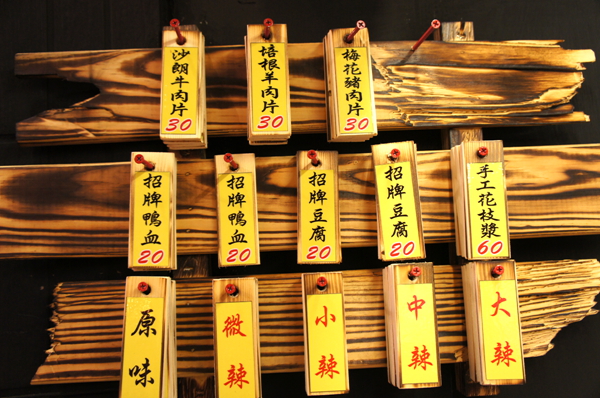 沙朗牛肉片
30
培根羊肉片
30
梅花豬肉片
30
招牌鴨血
20
招牌鴨血
20
招牌豆腐
20
招牌豆腐
20
手工花枝漿
60
原味
微辣
小辣
中辣
大辣